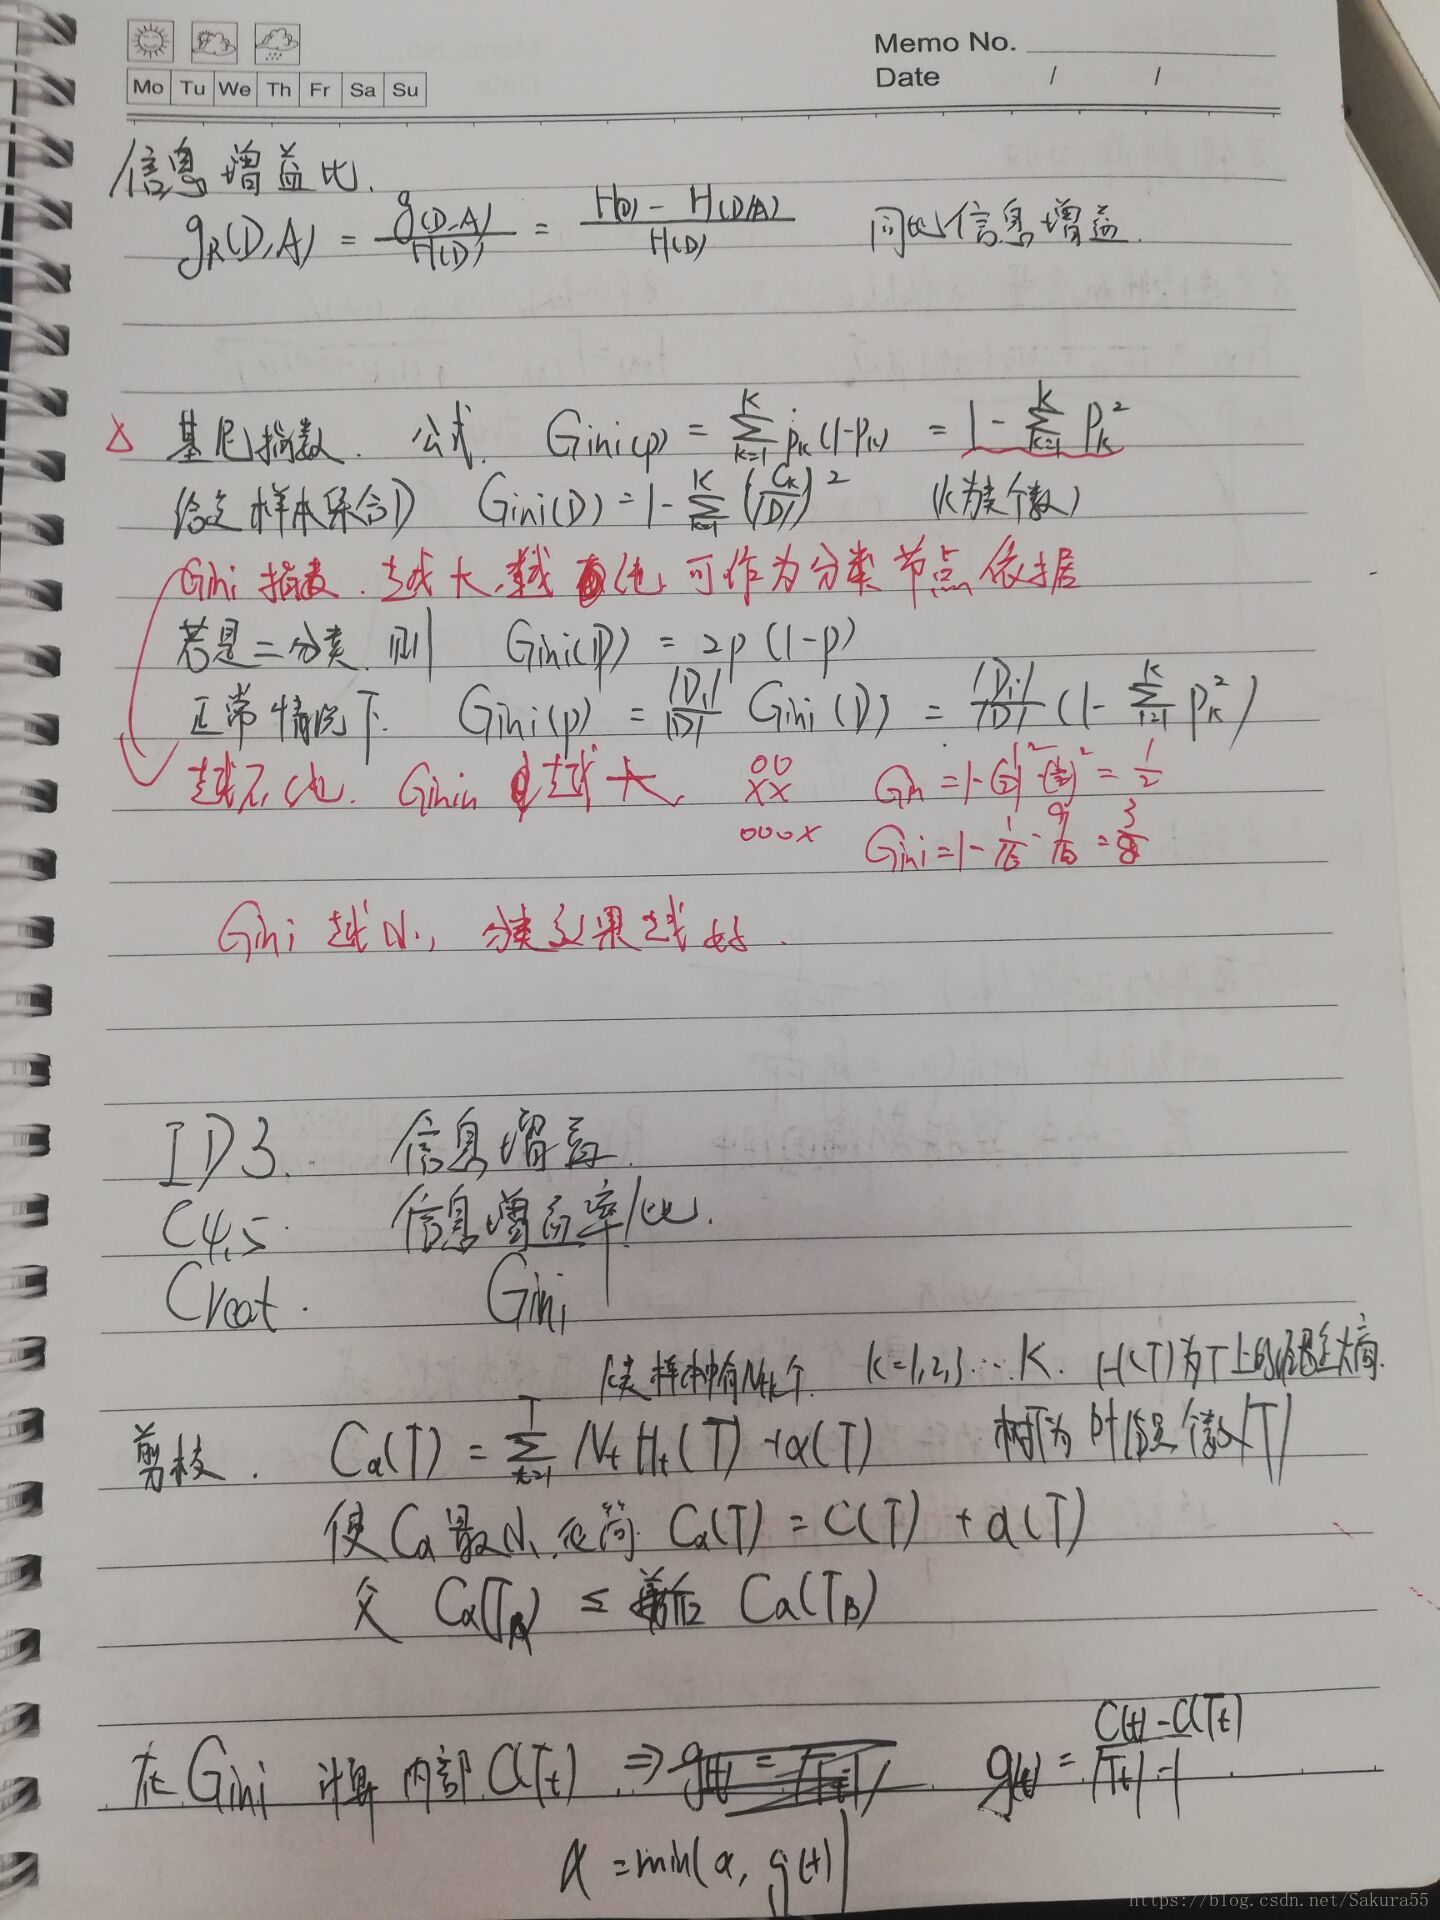 Memo No.
Date / /
Mo Tu We Th Fr Sa Su
信息增益比.
g_R(D,A) = g(D,A)/H(D) = (H(D) - H(D|A))/H(D) 同比信息增益.
△ 基尼指数. 公式. Gini(p) = ∑_{k=1}^{K} p_k(1-p_k) = 1 - ∑_{k=1}^{K} p_k^2
给定样本集合D Gini(D) = 1 - ∑_{k=1}^{K} (C_k/|D|)^2 (K为类个数)
Gini 指数.越大,越 化 可作为分类节点依据
若是二分类.则 Gini(p) = 2p(1-p)
正常情况下. Gini(p) = |D_i|/|D| Gini(D) = |D_i|/|D| (1 - ∑_{i=1}^{K} p_k^2)
越不化. Ginin 越大.
oo
xx
Gin = 1-(1/2)^2-(1/2)^2 = 1/2
ooox Gini = 1 - 1/16 - 9/16 = 3/8
Gini 越小, 分类效果越好.
ID3. 信息增益.
C4.5 信息增益率/比.
Creat. Gini
K类样本中有N_{tk}个. K=1,2,3…K. H(T)为T上的经验熵.
剪枝. Cα(T) = ∑_{t=1}^{T} N_t H_t(T) + α(T) 树T为叶结点个数|T|
使Cα最小,化简 Cα(T) = C(T) + α(T)
父 Cα(T_A) ≤ 剪后 Cα(T_B)
在Gini 计算内部C(T_t) ⇒ g(t) = (C(t)-C(T_t))/(|T_t|-1)
α = min(α, g(t))
https://blog.csdn.net/Sakura55